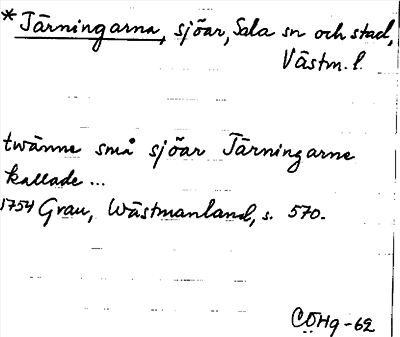 * Tärningarna, sjöar, Sala sn och stad,
Västm. l.
twänne små sjöar Tärningarne
kallade ...
1754 Grau, Wästmanland, s. 570.
CÖHg-62